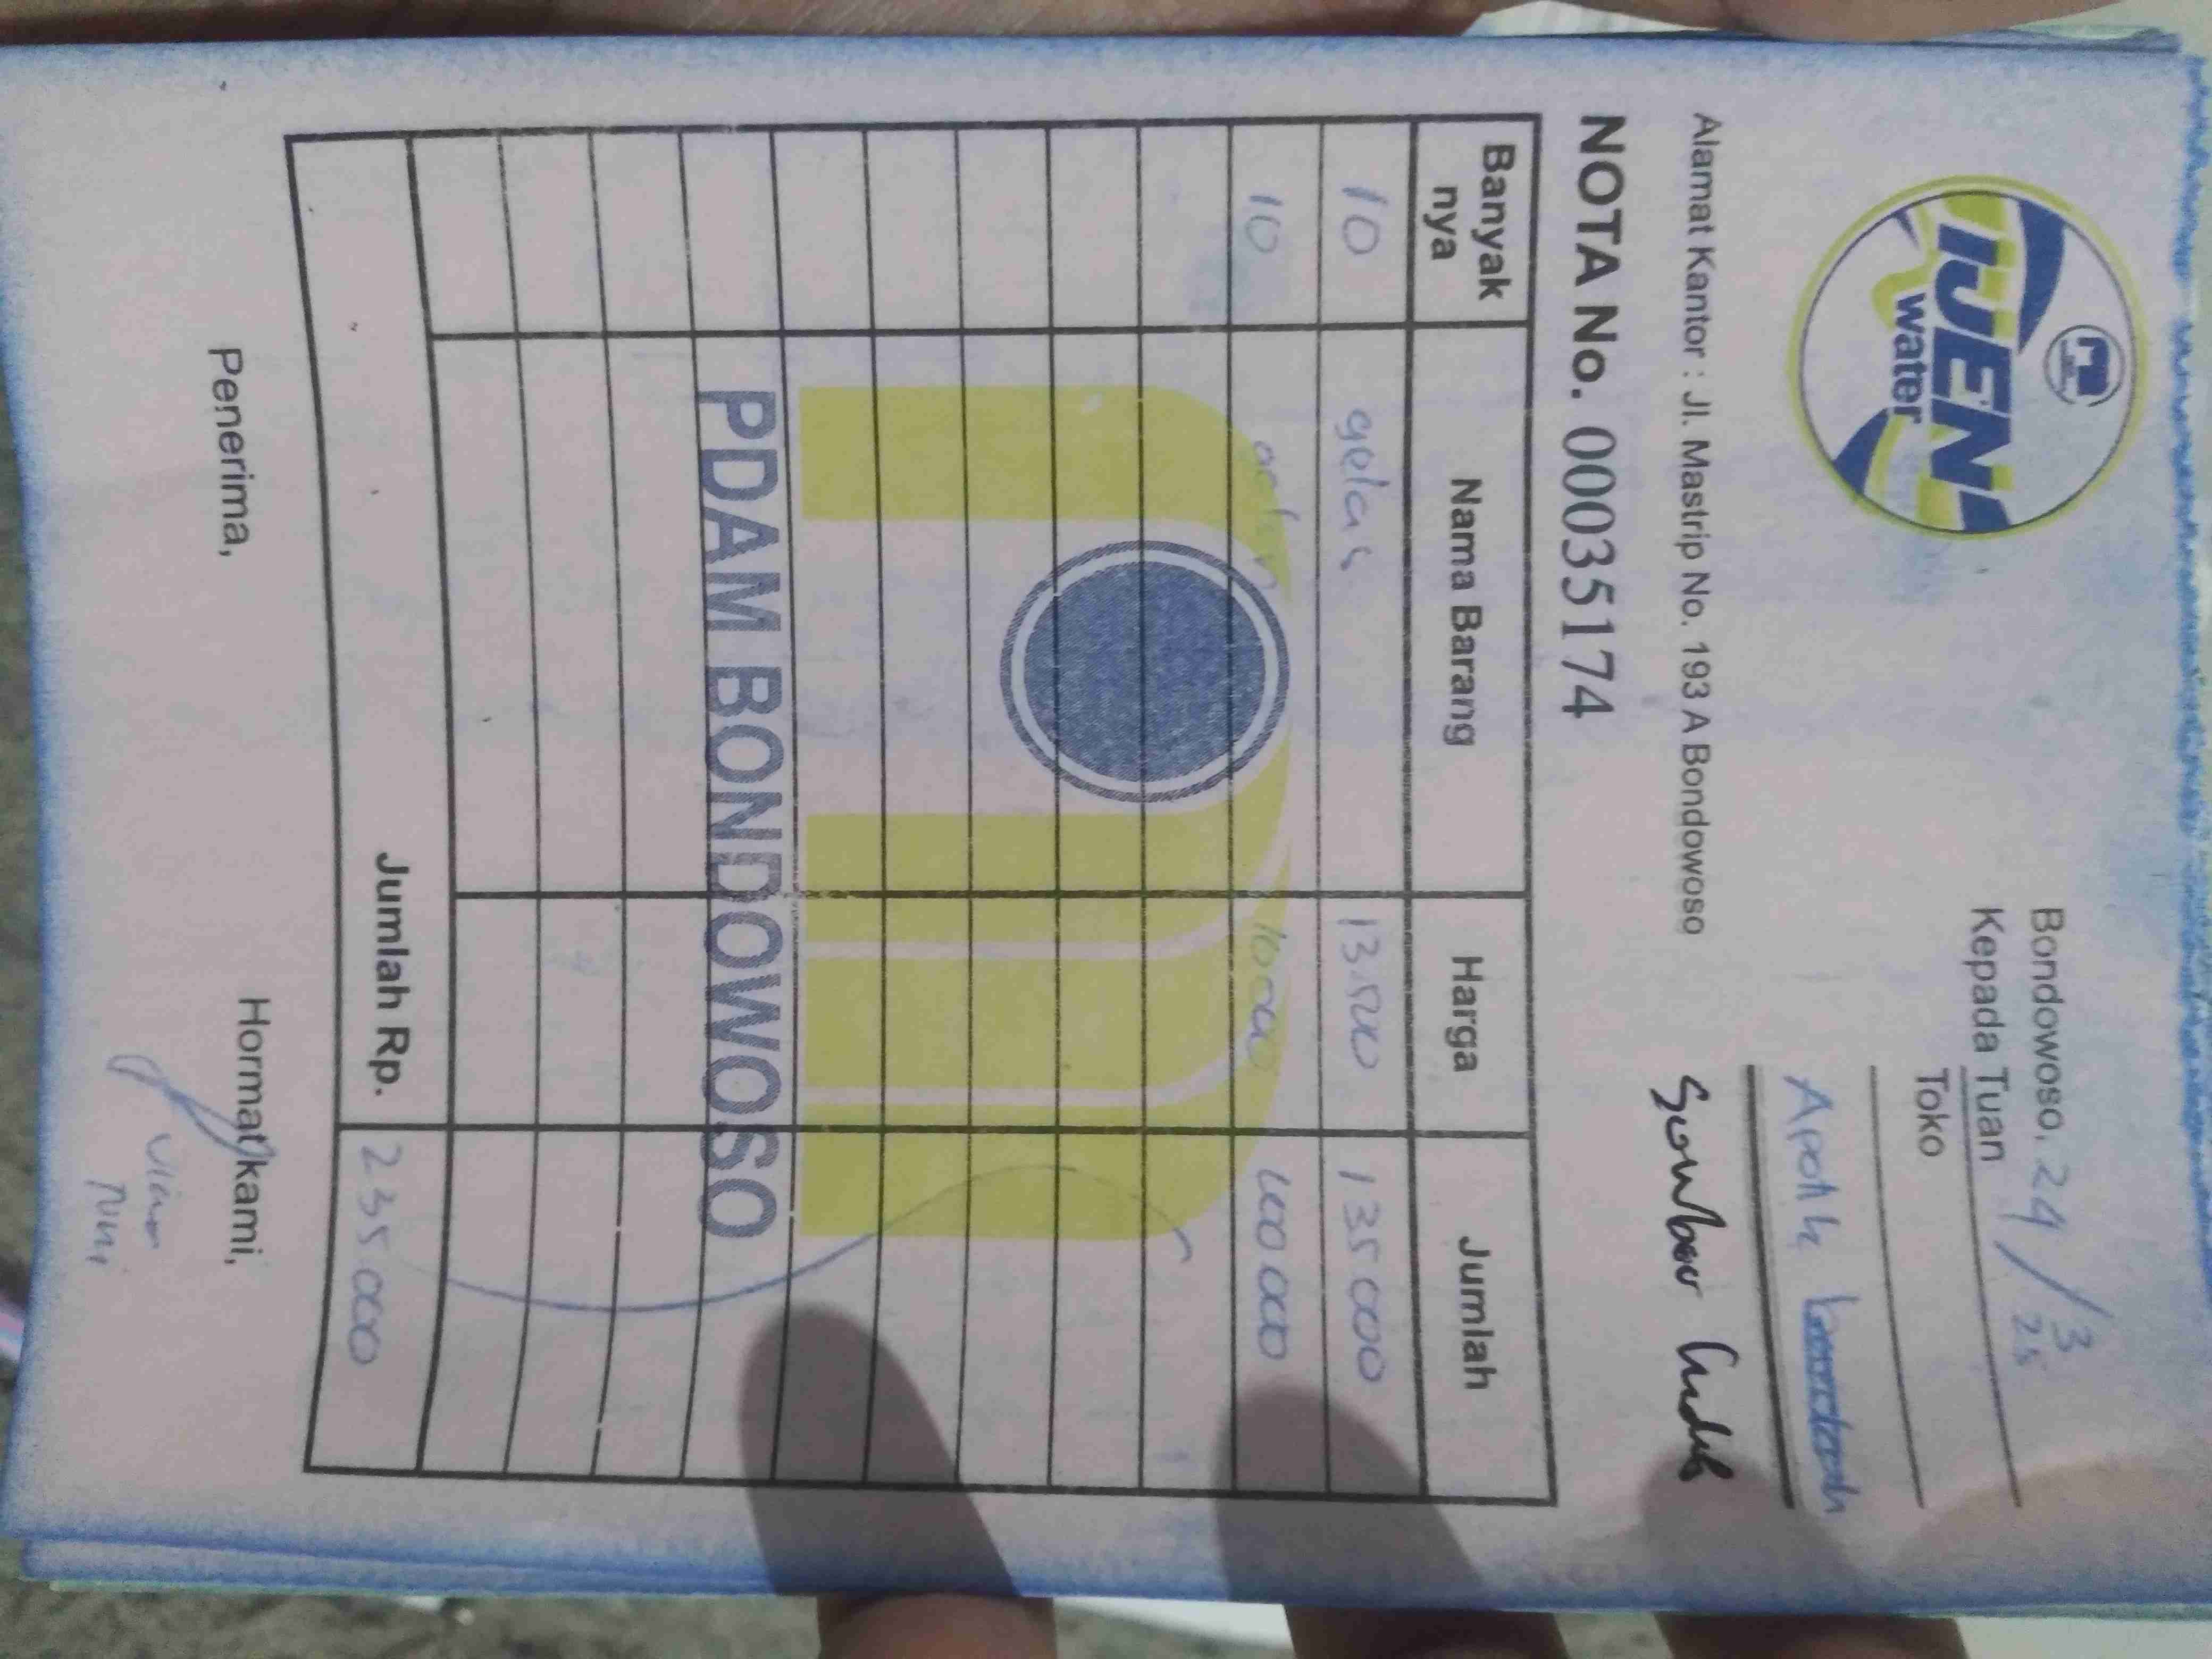 IJEN
water
Bondowoso, 24/3 25
Kepada Tuan
Toko
Apotik
Sumber
Alamat Kantor : Jl. Mastrip No. 193 A Bondowoso
NOTA No. 00035174
Banyak nya Nama Barang Harga Jumlah
10 gelas 13.500 135.000
10 galon 10.000 100.000
PDAM BONDOWOSO
Jumlah Rp. 235.000
Penerima, Hormat kami,